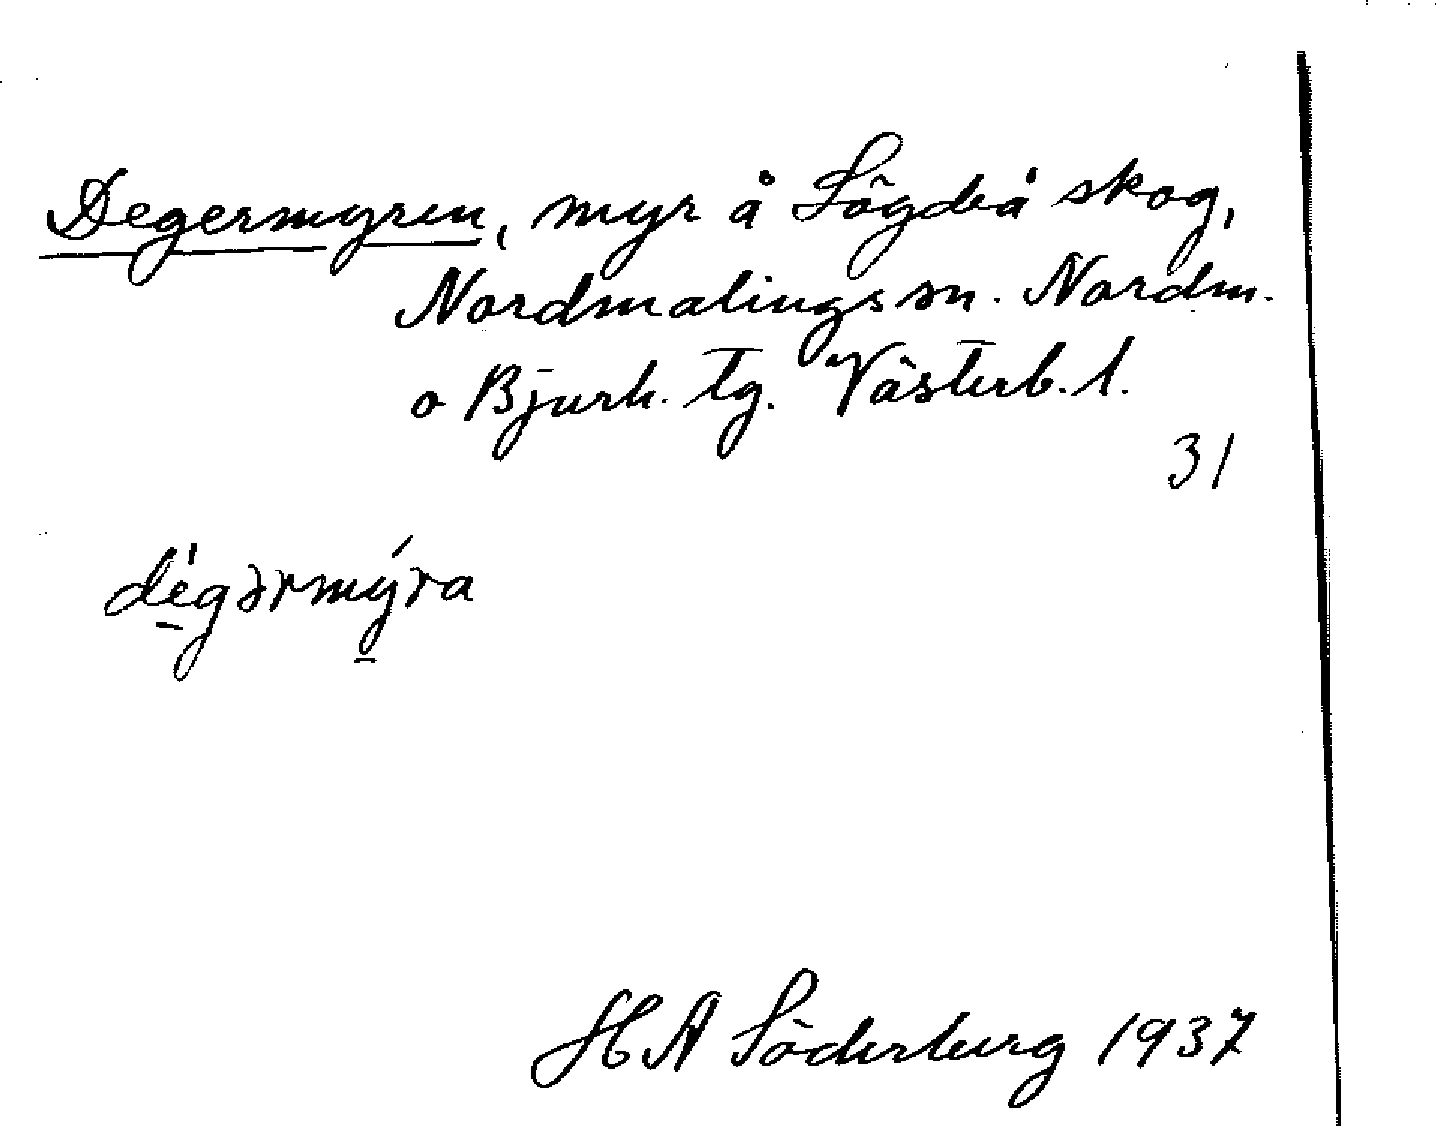 Degermyren, myr å Lögdeå skog,
Nordmalings sn. Nordm.
o Bjurh. tg. Västerb. l.
31
dé̱gərmý̱ra
HA Söderberg 1937